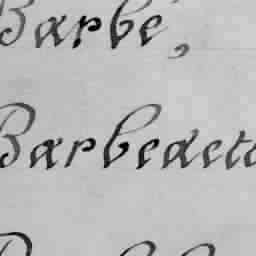 Barbé,
Barbedett